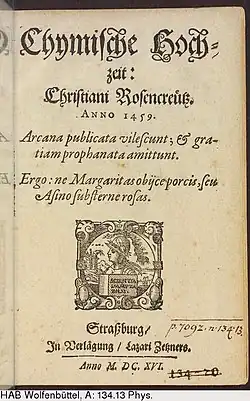 Chymische Hoch-
zeit:
Christiani Rosencreütz.
ANNO 1459.
Arcana publicata vilescunt; & gra-
tiam prophanata amittunt.
Ergo: ne Margaritas obijce porcis, seu
Asino substerne rosas.
Straßburg/
In Verlägung/ Lazari Zetzners.
Anno M. DC. XVI.
HAB Wolfenbüttel, A: 134.13 Phys.